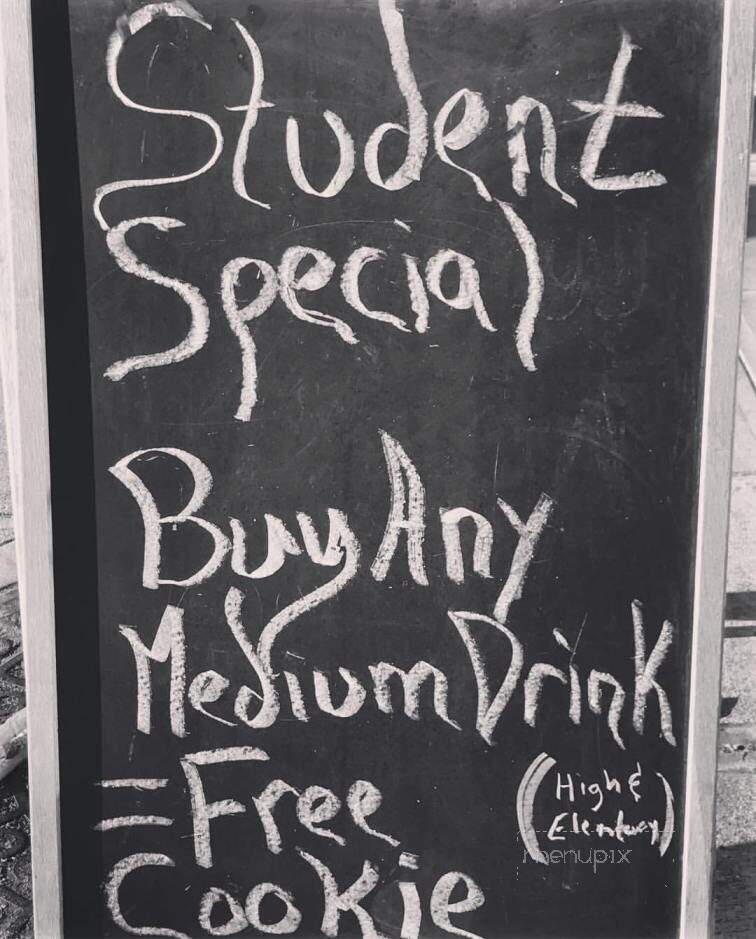 Student
Special
Buy Any
Medium Drink
= Free
Cookie
(High &
Elentary)
menupix